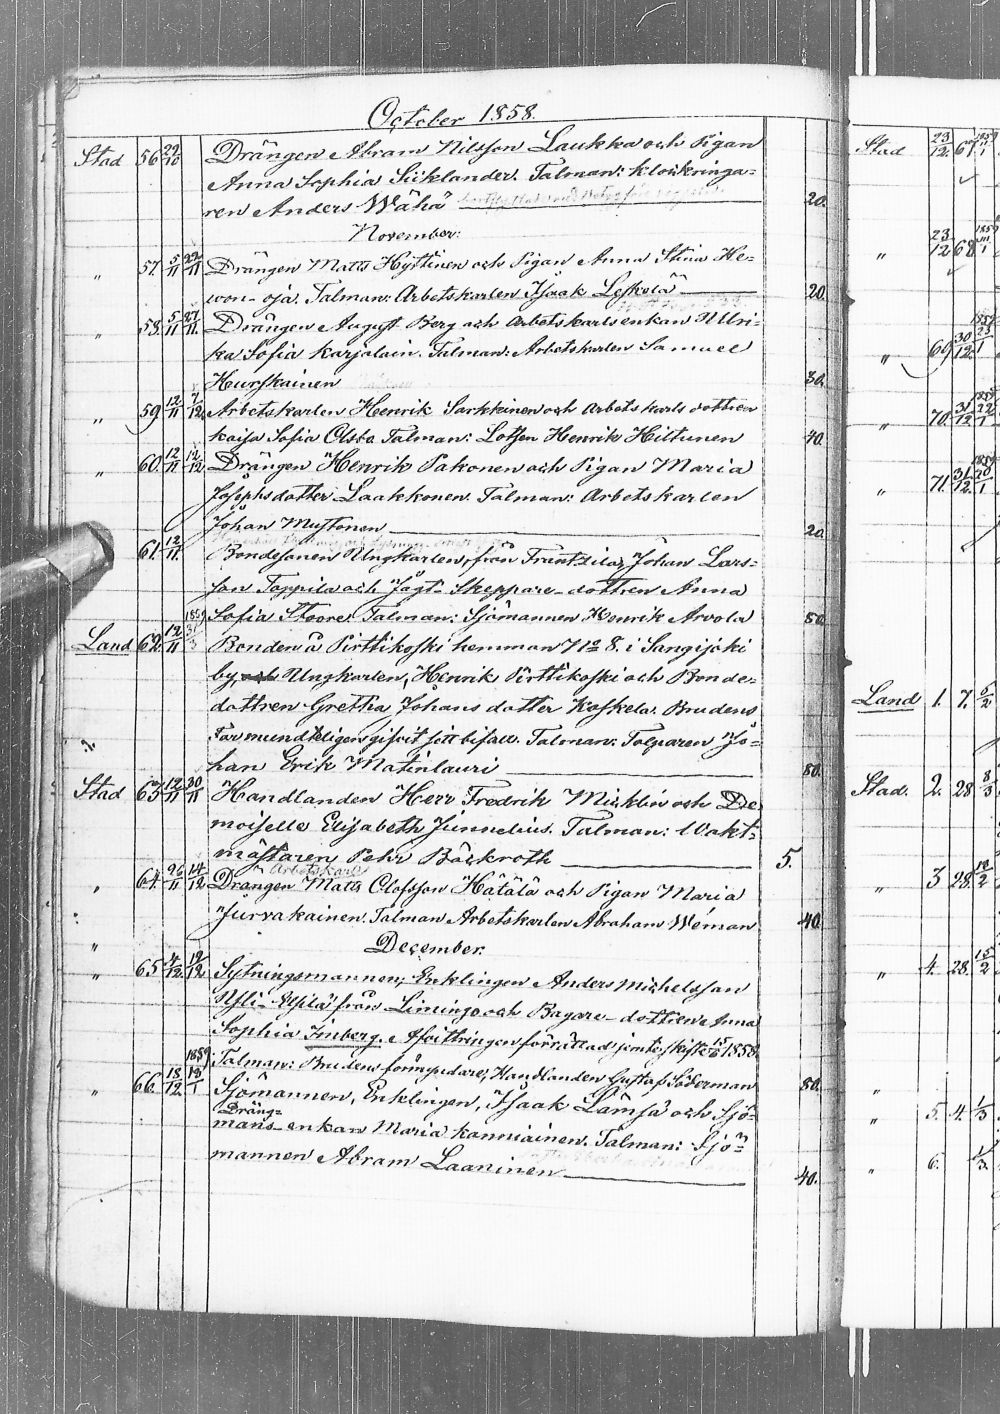 October 1858.
Stad 56 29/10 Drängen Abram Nilsson Laukka och Pigan
Anna Sophia Sicklander. Talman: Klockringa-
ren Anders Wähä 20.
November:
" 57. 5/11 Drängen Matts Hyttinen och Pigan Anna Stina He-
won-oja. Talman: Arbetskarlen Isaak Leskelä 20.
" 58. 5/11 27/11 Drängen August Berg och Arbetskarlsenkan Ulri-
ka Sofia Karjalain. Talman: Arbetskarlen Samuel
Hurskainen 30.
" 59 12/11 7/12 Arbetskarlen Henrik Sarkkinen och Arbetskarls dottren
Kaisa Sofia Olsba Talman: Lotsen Henrik Hiltunen 40.
" 60. 12/11 12/12 Drängen Henrik Pakonen och Pigan Maria
Josephsdotter Laakkonen. Talman: Arbetskarlen
Johan Mustonen 20.
61. 12/11. Bondesonen Ungkarlen, från Frantzila, Johan Lars-
son Toppila och Jagt-Skeppare-dottren Anna
Sofia Stoore. Talman: Sjömannen Henrik Arvola 80.
Land 62. 12/11 1859 31/3 Bonden å Pirttikoski hemman No 8. i Sangijoki
by, och Ungkarlen, Henrik Pirttikoski och Bonde-
dottren Gretha Johansdotter Koskela. Brudens
Förmundteligen gifvit sitt bifall. Talman: Tolparen Jo-
han Erik Matinlauri 80.
Stad 63 12/11 30/11 Handlanden Herr Fredrik Micklin och De-
moiselle Elisabeth Junnelius. Talman: Wakt-
mästaren Pehr Bäckroth 5.
Arbetskarl
" 64. 26/11 14/12 Drängen Matts Olofsson Hätälä och Pigan Maria
Jurvakainen. Talman Arbetskarlen Abraham Weman 40.
" December.
" 65 4/12 19/12 Sytningsmannen, Enklingen Anders Michelsson
från Limingo och Bagare-dottren Anna
Sophia Finberg. Afvittringen förrättad jemte skifte 15/6 1858.
Talman: Brudens förmyndare, Handlanden Gustaf Söderman 80.
" 66. 18/12. 1859 13/1 Sjömannen, Enklingen, Isaak Lämsä och Sjö-
Dräng-
mans-enkan Maria Kanniainen. Talman: Sjö-
mannen Abram Laaninen 40.
Stad 23/12. 67
" 23/12 68.
" 69 30/12.
" 70. 31/12. 1859 22/1
" 71. 31/12. 1859 20/1
Land 1. 7. 5/2
Stad. 2. 28 8/3
" 3 28.
" 4. 28. 15/2
" 5. 4. 1/3
" 6.